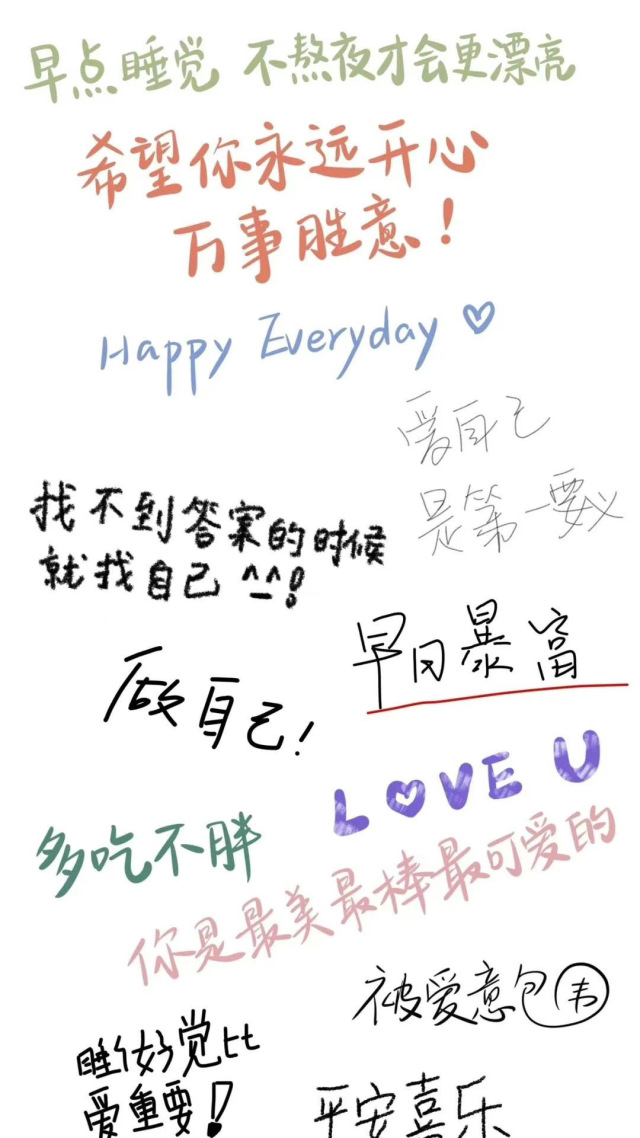 早点睡觉 不熬夜才会更漂亮
希望你永远开心
万事胜意!
Happy Everyday ♡
爱自己
是第一要义
找不到答案的时候
就找自己 ^_^!
早日暴富
做自己!
LOVE U
多吃不胖
你是最美最棒最可爱的
被爱意包韦
睡个好觉比
爱重要!
平安喜乐